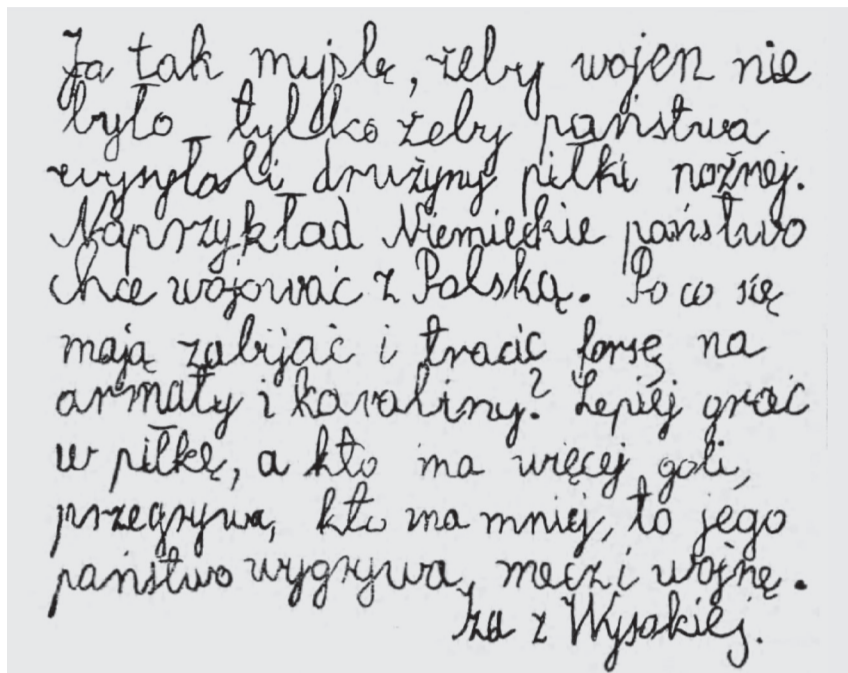 Ja tak myślę, żeby wojen nie
było tylko żeby państwa
wysyłali drużyny piłki nożnej.
Naprzykład Niemieckie państwo
chce wojować z Polską. Po co się
mają zabijać i tracić forsę na
armaty i karabiny? Lepiej grać
w piłkę, a kto ma więcej goli,
przegrywa, kto ma mniej, to jego
państwo wygrywa, mecz i wojnę.
Iza z Wysokiej.